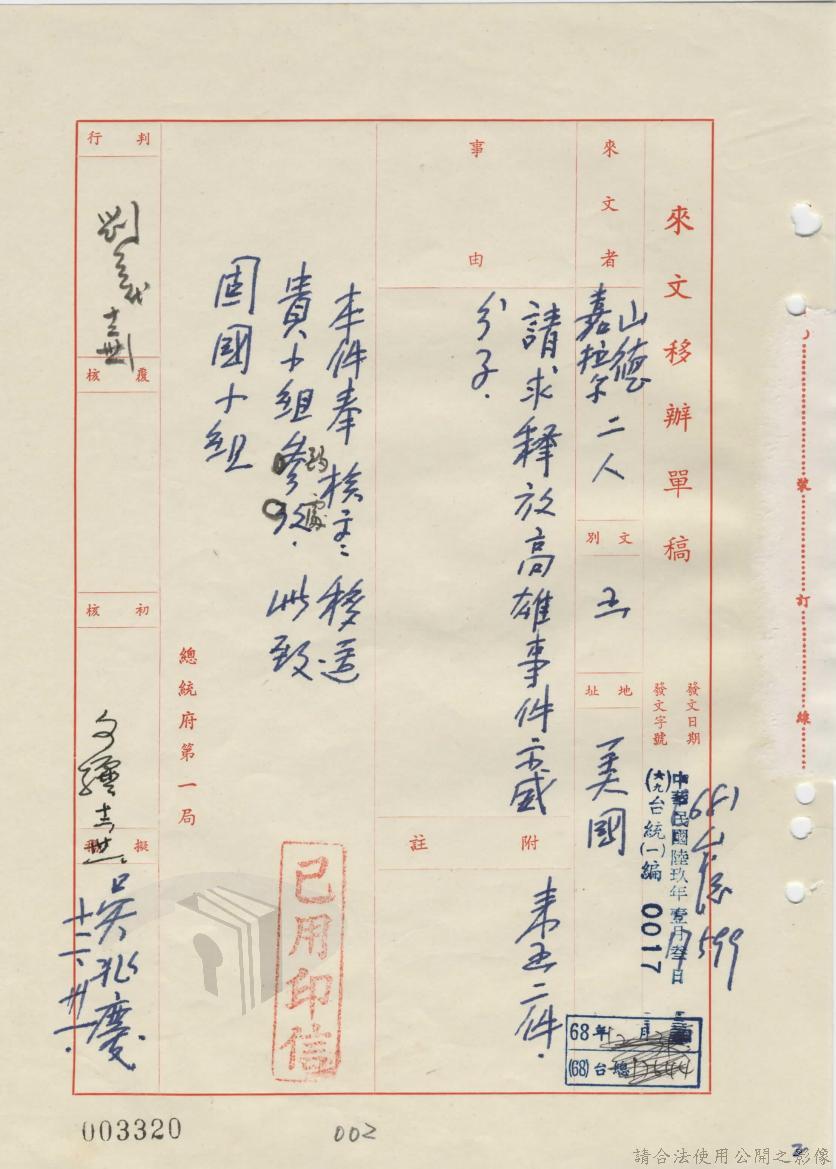 來文移辦單稿
發文日期
中華民國陸玖年壹月叁日
發文字號
(六九)台統(一)編 0017
681
599
68年12月
(68)台總
來文者
山德
嘉拉尔 二人
文別
函
地址
美國
事由
請求釋放高雄事件六感
分子.
附註
來函二件.
本件奉核定移送
貴小組參考. 此致
酌處
固國小組
總統府第一局
已用印信
判行
覆核
初核
擬
吳兆慶
十二、廿一.
裝
訂
線
003320
002
2
請合法使用公開之影像